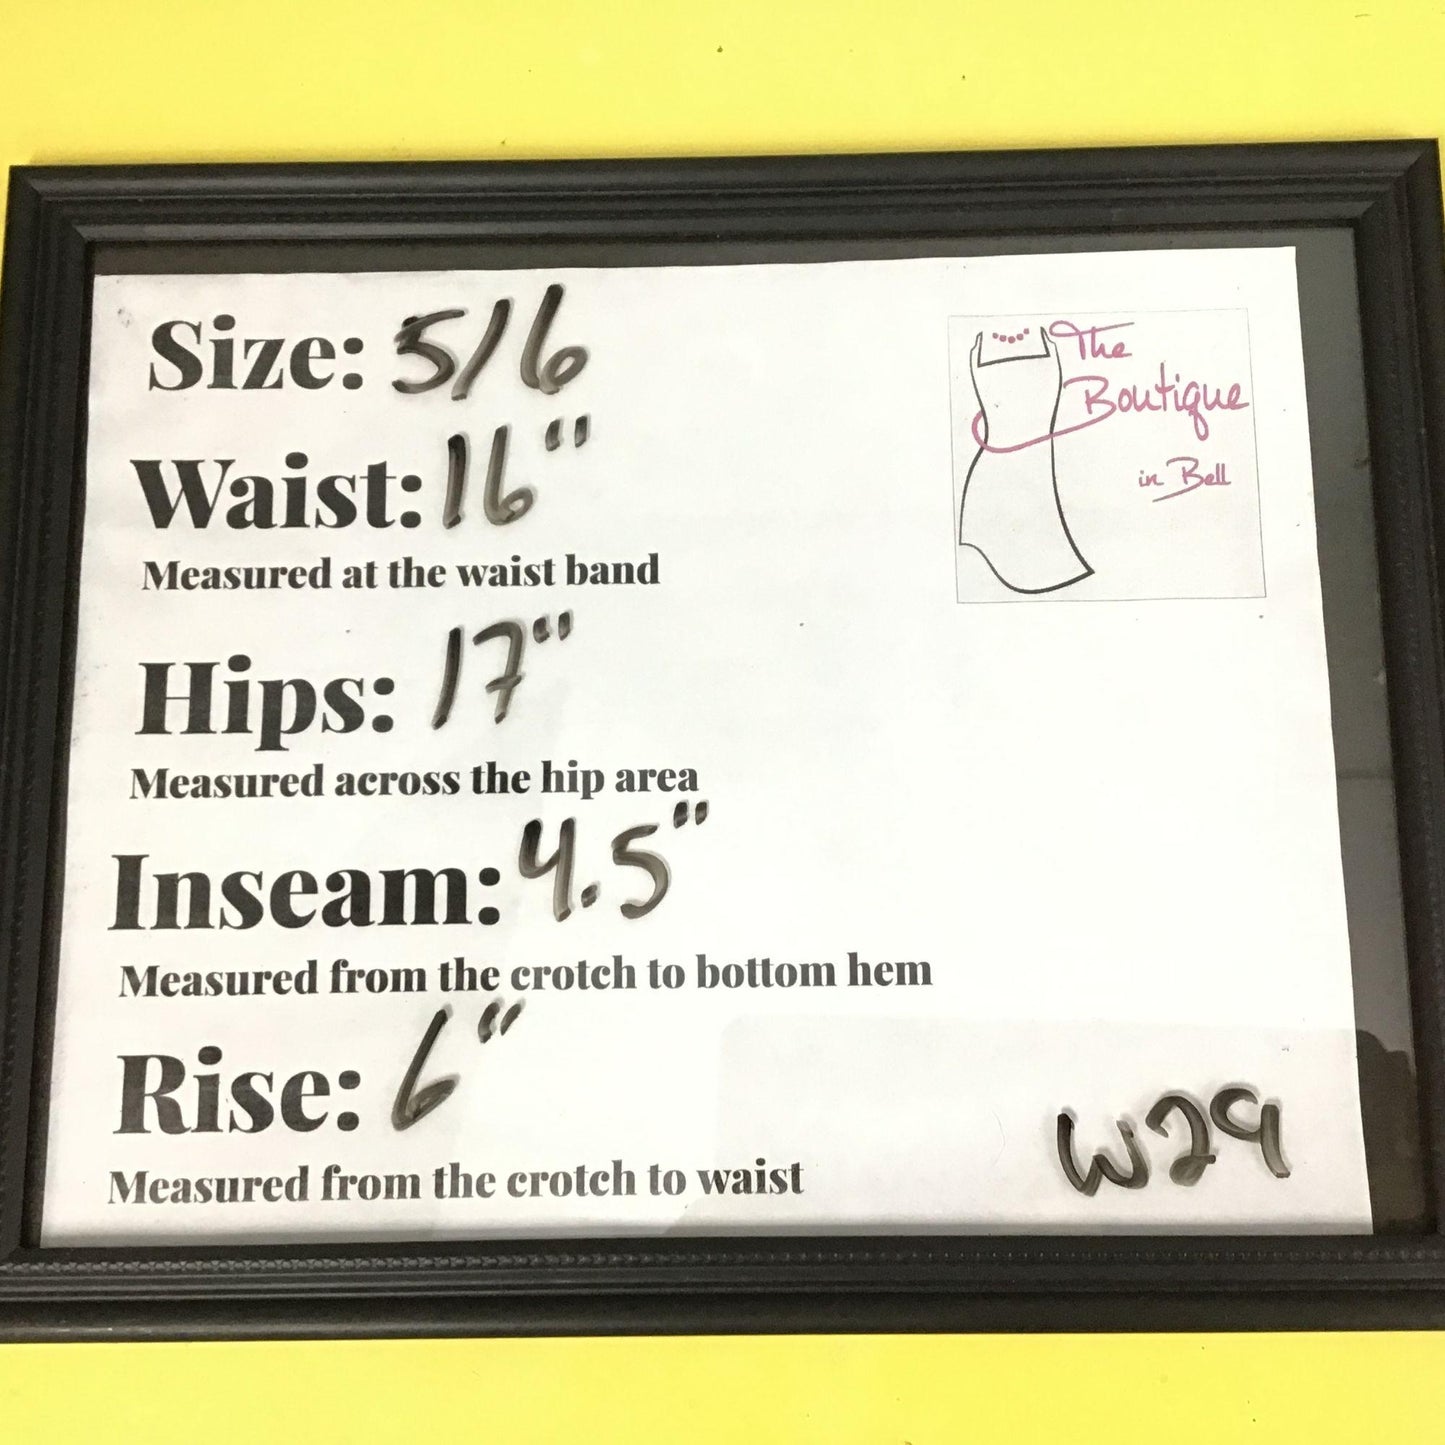 Size: 5/6
The
Boutique
in Bell
Waist: 16"
Measured at the waist band
Hips: 17"
Measured across the hip area
Inseam: 4.5"
Measured from the crotch to bottom hem
Rise: 6"
Measured from the crotch to waist
W29